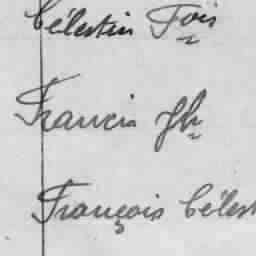 Célestin Fois
Francis Jh
François Célest